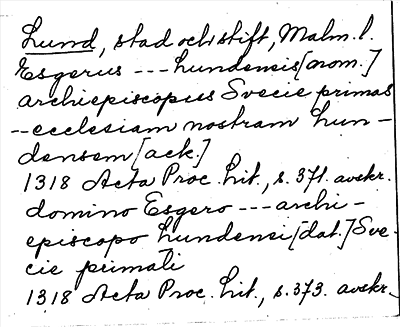 Lund, stad och stift, Malm. l.
Esgerus --- Lundensis [nom.]
archiepiscopus Svecie primas
-- ecclesiam nostram Lun-
densem [ack.]
1318 Acta Proc. lit., s. 371. avskr.
domino Esgero --- archi-
episcopo Lundensi [dat.] Sve-
cie primati
1318 Acta Proc. lit., s. 373. avskr.